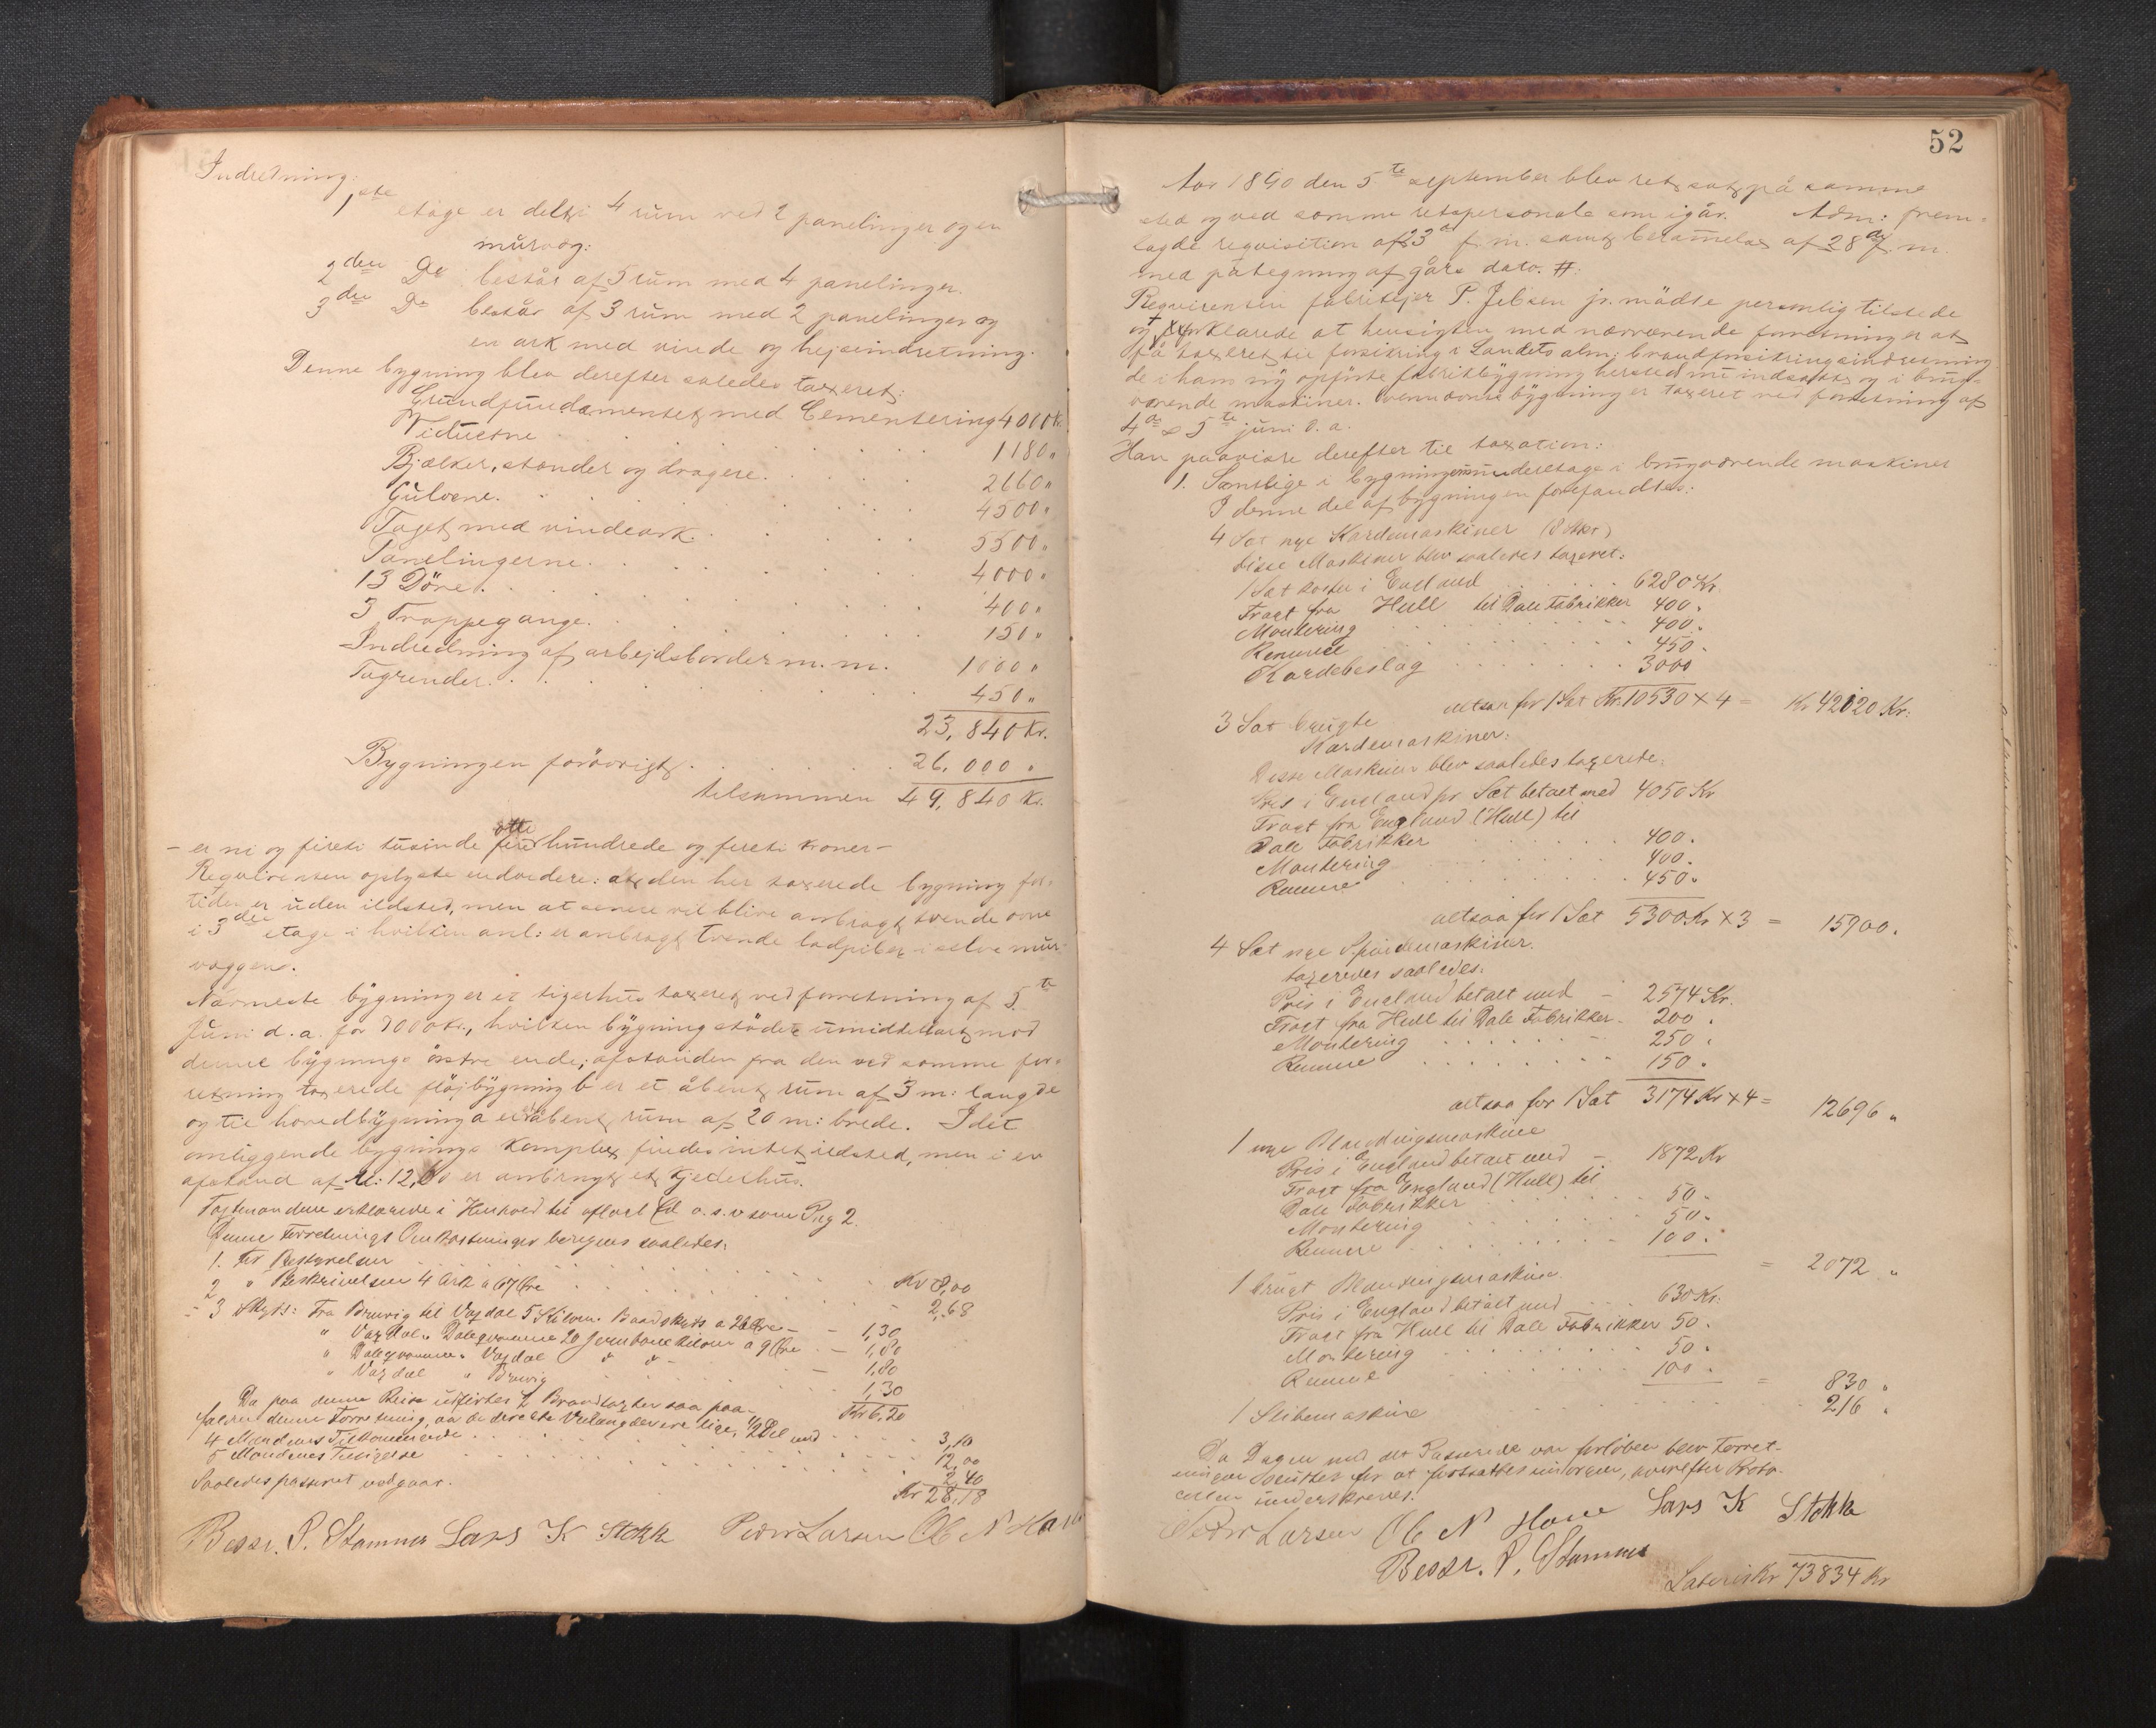 Indretning:
1ste etage er delt i 4 rum ved 2 panelinger og en
murvæg:
2den Do består af 5 rum med 4 panelinger.
3die Do består af 3 rum med 2 panelinger og
en ark med vinde og hejseindretning.
Denne bygning blev derefter således taxeret:
Grundfundamentet med Cementering 4000 Kr.
Viduerne 1180 "
Bjælker, stænder og dragere. 2660 "
Gulvene. 4500 "
Taget med vindeark. 5500 "
Panelingerne. 4000 "
13 Döre. 400 "
3 Trappegange. 150 "
Indredning af arbejdsborder m. m. 1000 "
Tagrender. 450 "
23,840 Kr.
Bygningen forövrigt. 26,000 "
tilsammen 49,840 Kr.
- er ni og fireti tusinde otte hundrede og fireti kroner -
Requirenten oplyste endvidere: at den her taxerede bygning for
tiden er uden ildsted, men at senere vil blive anbragt tvende ovne
i 3die etage i hvilken anl: er anbragt tvende lodpiber i selve mur-
væggen.
Nærmeste bygning er et sigerhus taxeret ved forretning af 5te
Juni d. a. for 9000 Kr., hvilken bygning støder umiddelbart mod
denne bygnings östre ende; afstanden fra den ved samme for-
retning taxerede fløjbygning b er et åbent rum af 3 m: længde
og til hovedbygning a et åbent rum af 20 m: brede. I det
omliggende bygnings kompleks findes intet ildsted, men i en
afstand af M: 12,60 er anbragt et kjedelhus.
Taxtmændene erklærede i Henhold til aflagt Ed o. s. v som Pag 2.
Denne Forretnings Omkostninger beregnes saaledes:
1. For Bestyrelsen Kr 8,00
2 " Beskrivelsen 4 Ark a 67 Øre 2,68
3 Skyds: Fra Bruvig til Vaxdal 5 Kilom. Baadskyds a 26 Øre 1,30
" Vaxdal " Dalegvamme 20 Jernbane Kilom a 9 Øre 1,80
" Dalegvamme " Vaxdal " " 1,80
" Vaxdal " Bruvig 1,30
Kr 6,20
Da paa denne Reise udførtes 2 Brandtaxter saa paa-
falder denne Forretning, da de derække Veilængder ere lige, 1/2 Del med 3,10
4 Mændenes Tilkommende 12,00
5 Mændenes Tilsigelse 2,40
Kr 28,18
Saaledes passeret vedgaar.
Besr. P. Stamnes Lars K Stokka Peder Larsen Ole N Hane
52
Aar 1890 den 5te september blev ret sat på samme
sted og ved samme retspersonale som igår. Adm: frem-
lagde reqvisition af 23de f. m. samt berammelse af 28de f. m.
med påtegning af gårs dato. #:
Reqvirenten fabrikejer P. Jebsen jr. mødte personlig tilstede
og forklarede at hensigten med nærværende forretning er at
få taxeret til forsikring i Landets alm: brandforsikringsindretning
de i hans ny opførte fabrikbygning hersted nu indsatte og i brug-
værende maskiner. bygning er taxeret ved forretning af
4de & 5te juni d. a.
Han paaviste derefter til taxation:
1. Samtlige i bygningens underetage i brugværende maskiner
I denne del af bygningen forefandtes:
4 Sæt nye Kardemaskiner (8 Stkr.)
Disse Maskiner blev saaledes taxeret:
1 Sæt koster i England 6280 Kr.
Fragt fra Hull til Dale Fabrikker 400 "
Montering 400 "
Remme 450 "
Kardebeslag 3000
altsaa for 1 Sæt Kr. 10530 × 4 = Kr 42120 Kr:
3 Sæt brugte
Kardemaskiner:
Disse Maskiner blev saaledes taxerede:
Pris i England pr Sæt betalt med 4050 Kr
Fragt fra England (Hull) til
Dale Fabrikker 400 "
Montering 400 "
Remme 450 "
altsaa for 1 Sæt 5300 Kr × 3 = 15900 "
4 Sæt nye Spindemaskiner.
taxeredes saaledes:
Pris i England betalt med 2574 Kr.
Fragt fra Hull til Dale Fabrikker 200 "
Montering 250 "
Remme 150 "
altsaa for 1 Sæt 3174 Kr × 4 = 12696 "
1 nye Blandingsmaskine
Pris i England betalt med 1872 Kr
Fragt fra England (Hull) til
Dale Fabrikker 50 "
Montering 50 "
Remme 100 "
= 2072 "
1 brugt Blandingsmaskine.
Pris i England betalt med 630 Kr:
Fragt fra Hull til Dale Fabrikker 50 "
Montering 50 "
Remme 100 "
= 830 "
1 Slibemaskine 216 "
Da Dagen med det Passerede var forløben blev Forret-
ningen for at fortsættes imorgen, hvorefter Proto-
collen underskreves.
Peder Larsen Ole N Hane Lars K Stokka
Besr. P. Stamnes
Lateris Kr 73834 Kr